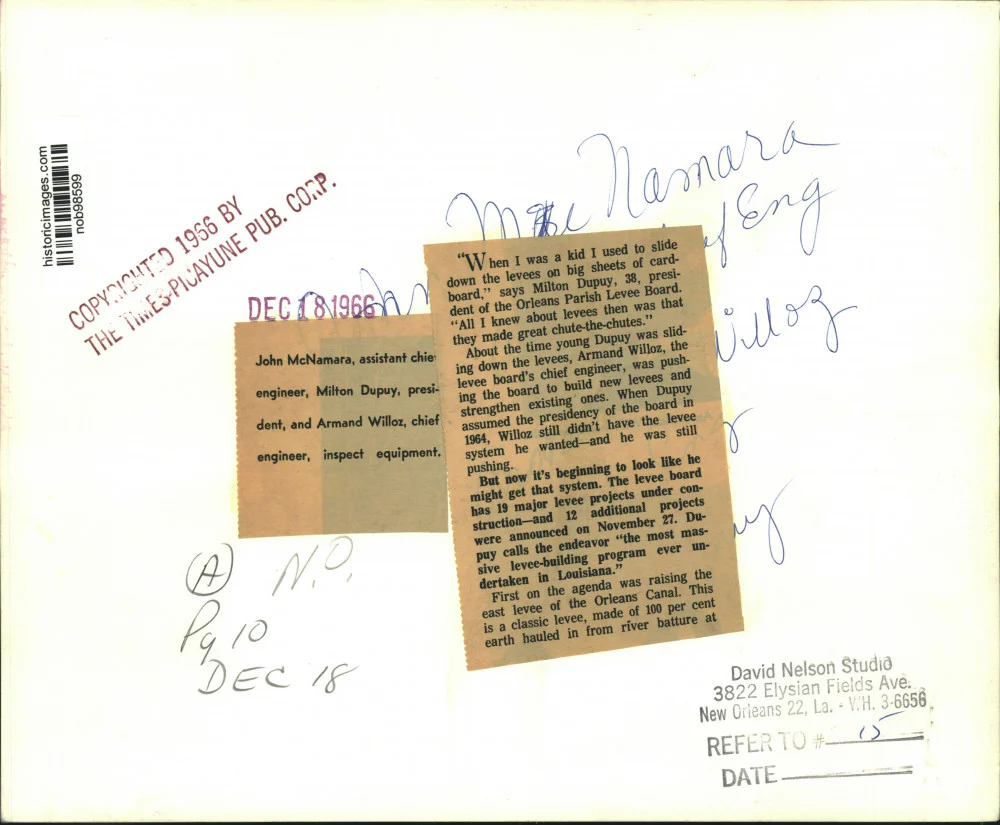 historicimages.com
nob98599
COPYRIGHTED 1966 BY
THE TIMES-PICAYUNE PUB. CORP.
DEC 18 1966
Namara
of Eng
Willoz
John McNamara, assistant chie
engineer, Milton Dupuy, presi-
dent, and Armand Willoz, chief
engineer, inspect equipment.
"When I was a kid I used to slide
down the levees on big sheets of card-
board," says Milton Dupuy, 38, presi-
dent of the Orleans Parish Levee Board.
"All I knew about levees then was that
they made great chute-the-chutes."
About the time young Dupuy was slid-
ing down the levees, Armand Willoz, the
levee board's chief engineer, was push-
ing the board to build new levees and
strengthen existing ones. When Dupuy
assumed the presidency of the board in
1964, Willoz still didn't have the levee
system he wanted—and he was still
pushing.
But now it's beginning to look like he
might get that system. The levee board
has 19 major levee projects under con-
struction—and 12 additional projects
were announced on November 27. Du-
puy calls the endeavor "the most mas-
sive levee-building program ever un-
dertaken in Louisiana."
First on the agenda was raising the
east levee of the Orleans Canal. This
is a classic levee, made of 100 per cent
earth hauled in from river batture at
uy
A N.O.
Pg 10
DEC 18
David Nelson Studio
3822 Elysian Fields Ave.
New Orleans 22, La. - WH. 3-6656
REFER TO # 15
DATE